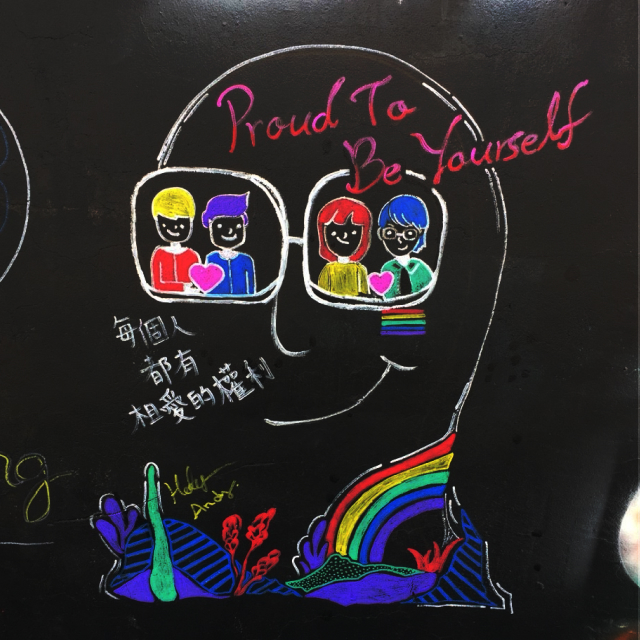 Proud To
Be Yourself
每個人
都有
相愛的權利
Andy.